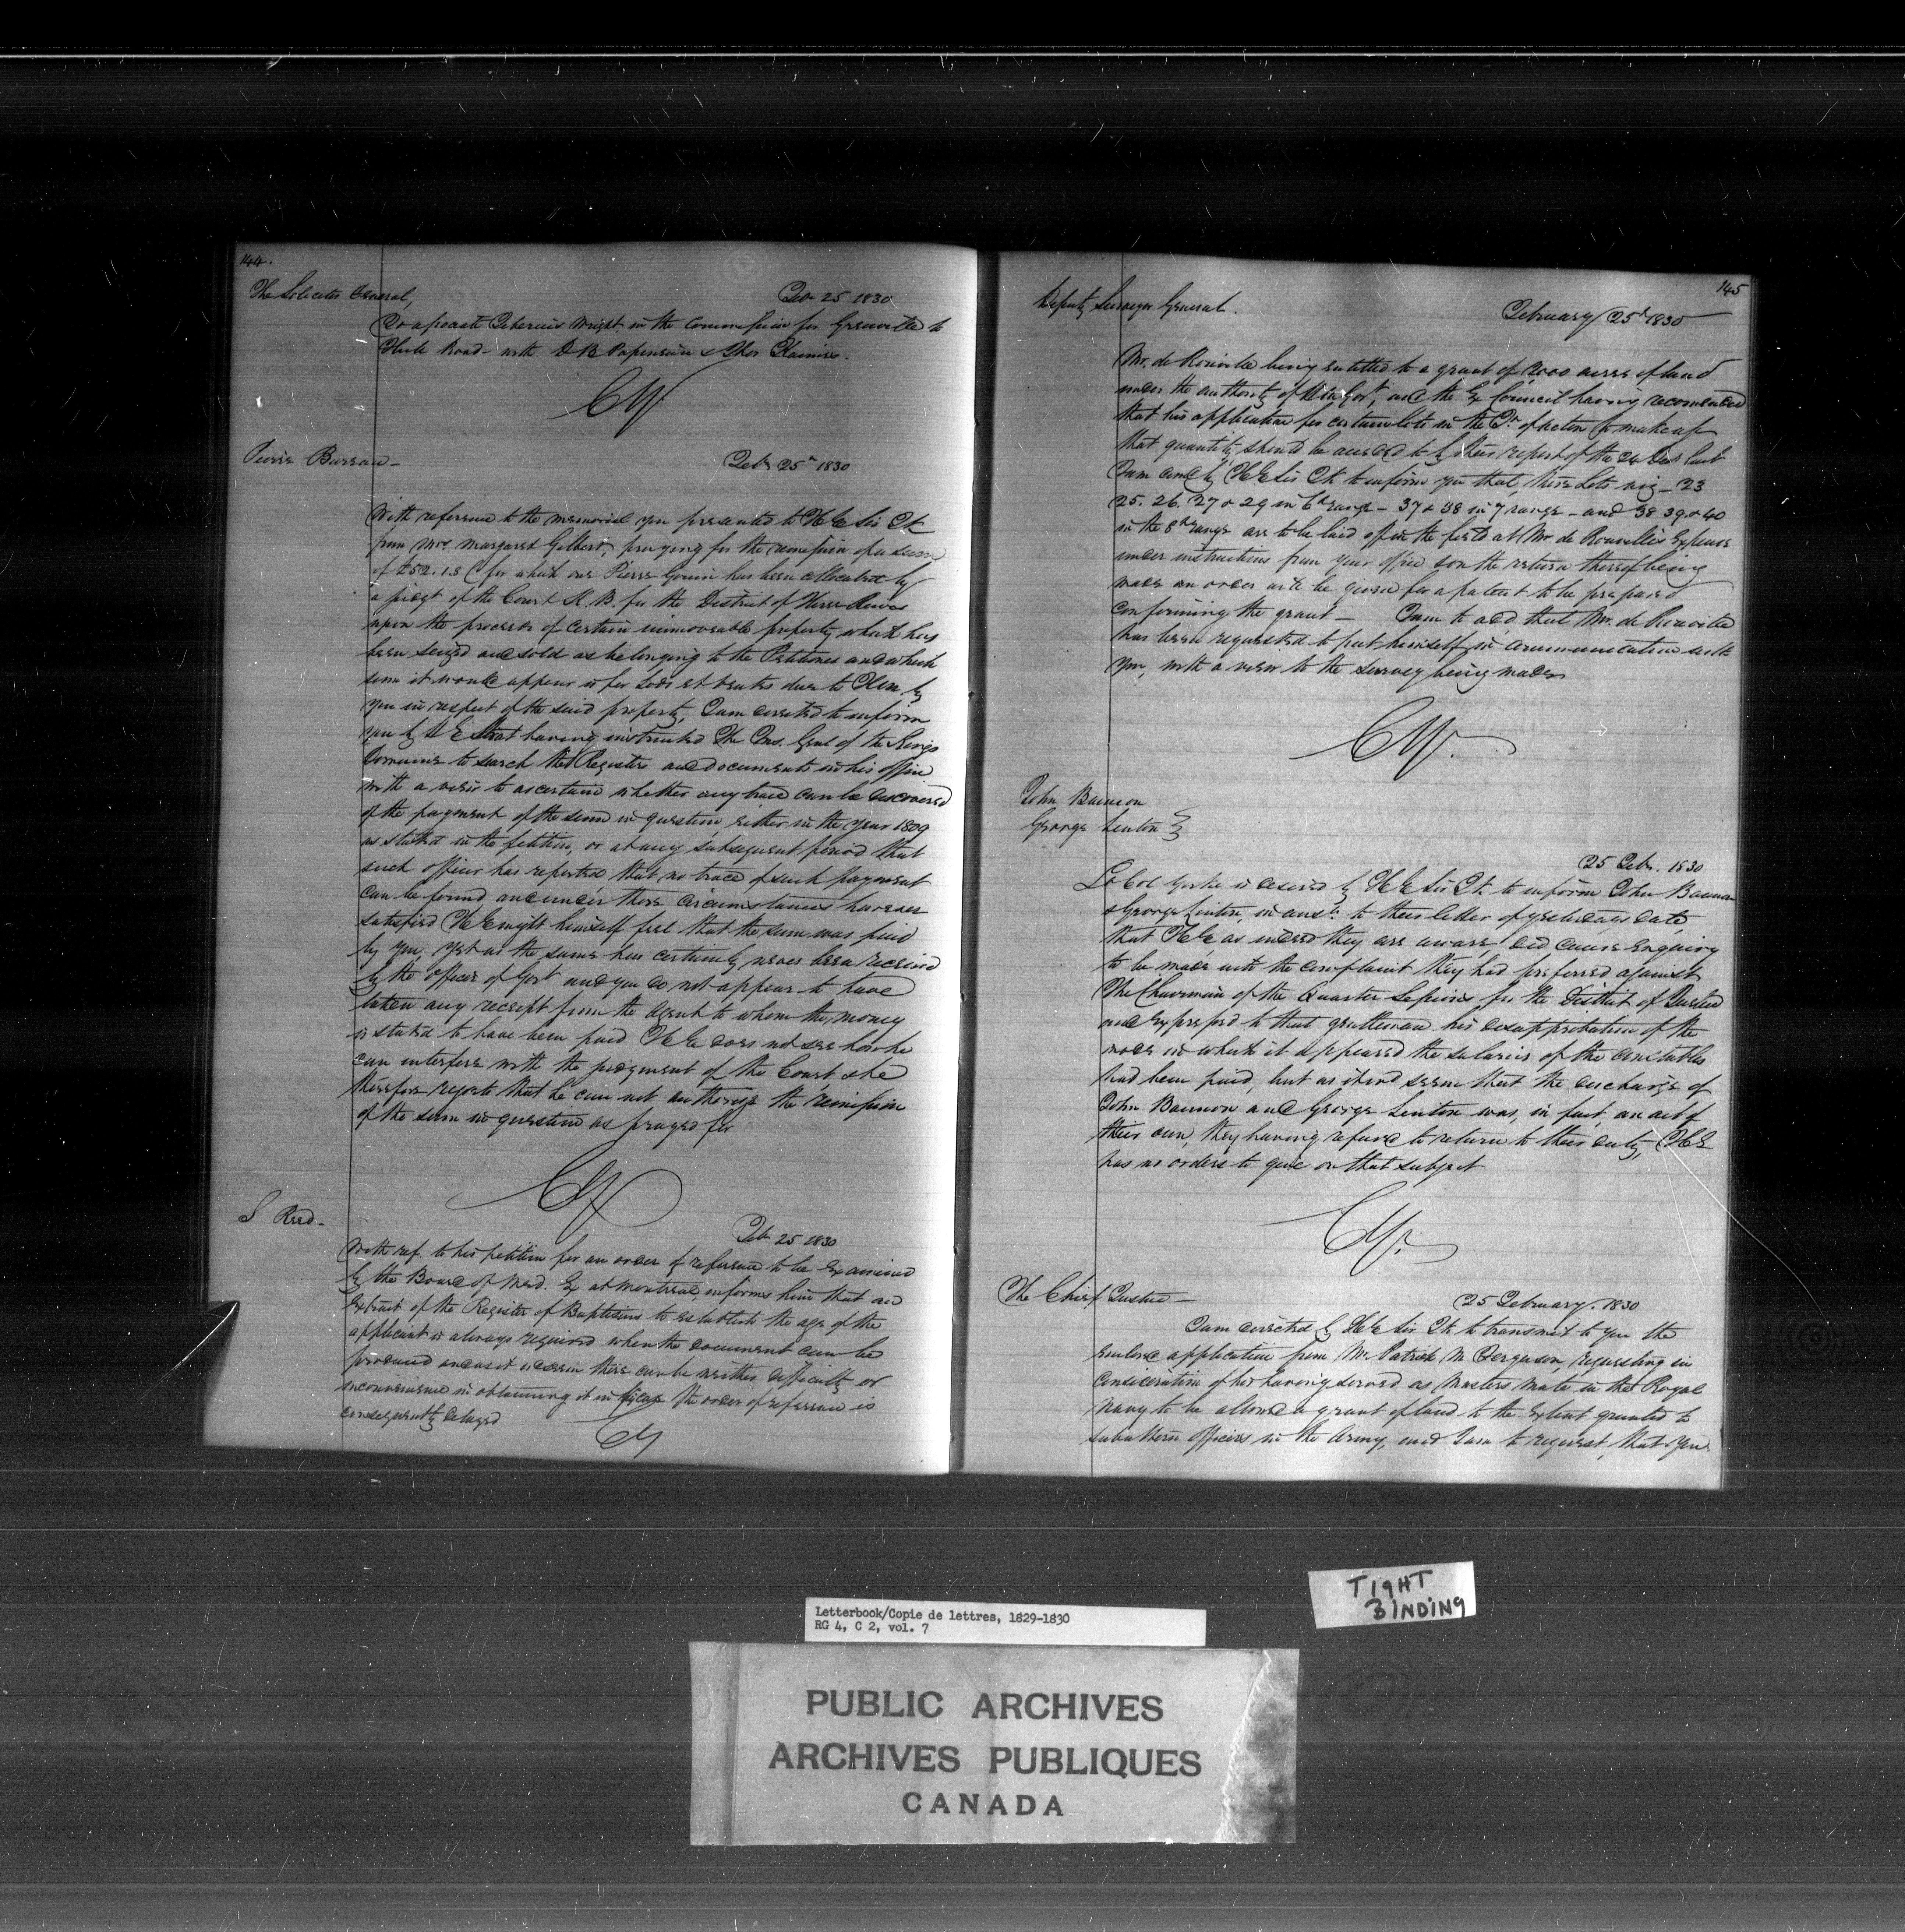 144.
The Solicitor General,
Feb 25 1830
To associate Tiberius Wright in the Commission for Grenville to
Hull Road with D B Papineau & Thos
CY
Pierre Bureau
Feb 25th 1830
With reference to the memorial you presented to H E Sir Jk
from Mrs Margaret Gilbert, praying for the remission of a sum
of £52.1.5 for which one Pierre Gouin has been collocated by
a judgt of the Court K. B. for the District of Three Rivers
upon the proceeds of certain immoveable property which has
been seized and sold as belonging to the Petitioner and which
sum it would appear is for Lods et Ventes due to Him by
you in respect of the said property, I am directed to inform
you by H E that having instructed The Ins. Genl of the Kings
Domaine to search the Registers and documents in his office
with a view to ascertain whether any trace can be discovered
of the payment of the sum in question either in the year 1809
as stated in the petition, or at any subsequent period that
such officer has reported that no trace of such payment
can be found and under these circumstances however
satisfied H E might himself feel that the sum was paid
by you, yet as the same has certainly never been received
by the officer of Govt and you do not appear to have
taken any receipt from the Agent to whom the money
is stated to have been paid H E does not see how he
can interfere with the judgment of the Court & he
therefore regrets that he can not authorize the remission
of the sum in question as prayed for
CY
S Reed
Feb 25 1830
With ref. to his petition for an order of reference to be examined
by the Board of Med. Ex at Montreal, informs him that an
Extract of the Register of Baptisms to establish the age of the
applicant is always required when the document can be
produced and as it seems there can be neither difficulty or
inconvenience in obtaining it in the order of reference is
consequently delayed
CY
145
Deputy Surveyor General.
February 25th 1830
Mr. de Rouville being entitled to a grant of 1200 acres of land
under the authority of Govt, and the Ex Council having recommended
that his application for certain lots in the Tp of Acton to make up
that quantity should be acceded to by their report of the 24 last
I am comd by H E Sir Jk to inform you that, these Lots viz – 23
25. 26. 27 & 29 in 6th range – 37 & 38 in 7 range – and 38 39 & 40
in the 8th range are to be laid off in the field at Mr. de Rouville's Expence
under instructions from your office & on the return thereof being
made an order will be given for a patent to be prepared
confirming the grant – I am to add that Mr. de Rouville
has been requested to put himself in communication with
you, with a view to the survey being made
CY.
John Bannon
George Linton
25 Feb. 1830
Lt Col Yorke is desired by H E Sir Jk to inform John Bannon
& George Linton, in ansr. to their letter of yesterdays date
that H E as indeed they are aware, did cause Enquiry
to be made into the complaint they had preferred against
The Chairman of the Quarter Sessions for the District of Quebec
and expressed to that gentleman his disapprobation of the
mode in which it appeared the salaries of the constables
had been paid, but as it wd seem that the discharge of
John Bannon and George Linton was, in fact, an act of
their own, they having refused to return to their duty, H E
has no orders to give on that subject
CY.
The Chief Justice
25 February. 1830
I am directed by H E Sir Jk to transmit to you the
enclosed application from Mr Patrick M Ferguson, requesting in
consideration of his having served as Masters Mate in the Royal
Navy to be allowed a grant of land to the extent granted to
subaltern officers in the Army, and I am to request, that you
TIGHT
BINDING
Letterbook/Copie de lettres, 1829-1830
RG 4, C 2, vol. 7
PUBLIC ARCHIVES
ARCHIVES PUBLIQUES
CANADA